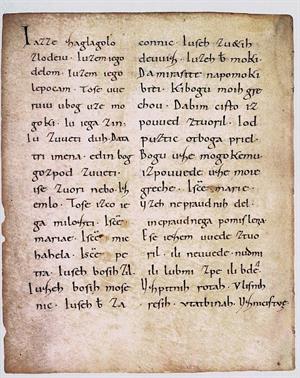 Iazze zaglagolo
zlodeiu. Iuzem iego
delom. Iuzem iego
lepocam. Tose uue
ruiu ubog uze mo
goki. Iu iega zin.
Iu zuueti duh. Data
tri imena. edin bog
gozpod zuueti.
ise zuori nebo. Isè
emlo. Tose izco ie
ga milozti. Isče
mariae. Isče mic
hahela. Isče pe
tra. Iuseh bosih zil.
Iuzeh bosih mose
nic. Iuseh b za
connic. Iuseh zuetih
deuuiz. Iuzeh b moki.
Da mirasite napomoki
biti. Kibogu moih gre
chou. Dabim cisto iz
pouued ztuoril. Iod
puztic otboga priel.
Bogu uze mogokemu
izpouuede uze moie
greche. I sče marie.
uzeh nepraudnih del.
inepraudnega pomislena
Ese iezem uuede ztuo
ril. ili neuuede. nudmi
ili lubmi zpe ili bde.
Uzpitnih rotah. Ulisnih
resih. Utatbinah. Uznicistue.